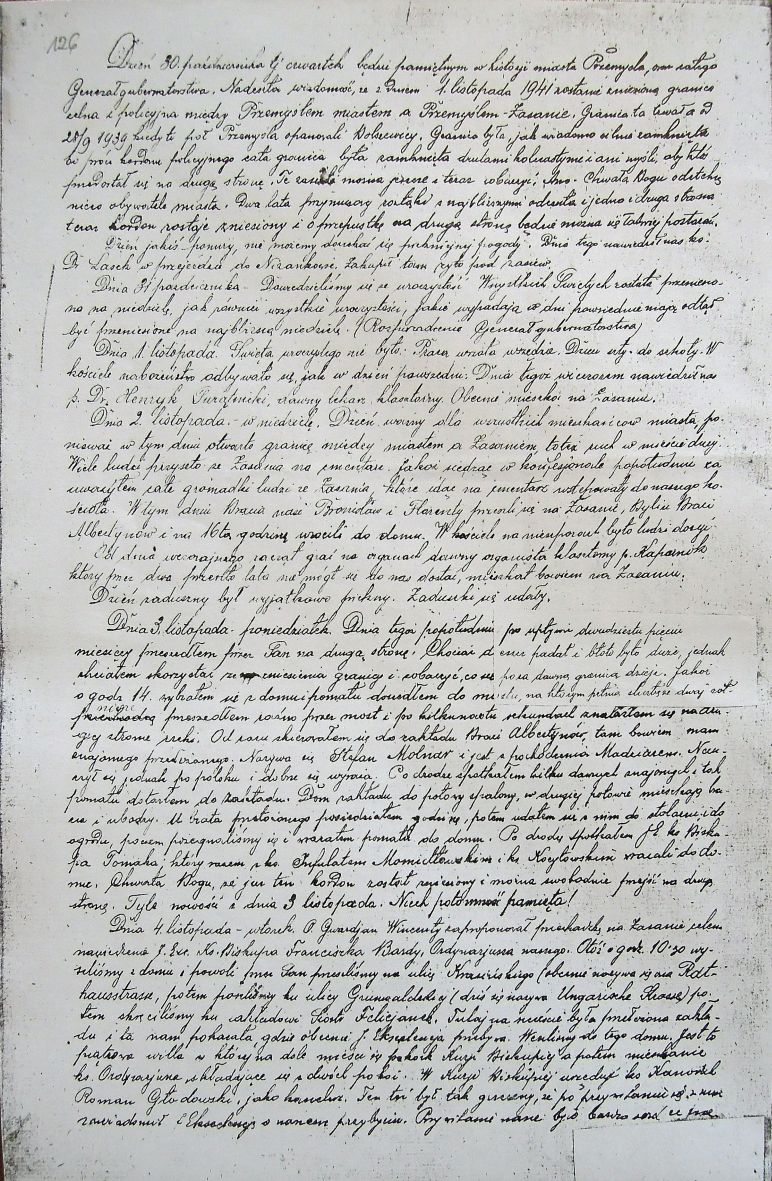 126
Dzień 30. października tj czwartek będzie pamiętnym w historji miasta Przemyśla, oraz całego
Generałgubernatorstwa. Nadeszła wiadomość, że z dniem 1. listopada 1941 zostanie zniesioną granica
celna i policyjna między Przemyślem miastem a Przemyślem-Zasanie. Granica ta trwała od
28/9 1939 kiedy to Przemyśla opanowali Bolszewicy. Granica była, jak wiadomo silnie zamknięta
bo prócz kordonu policyjnego cała granica była zamknięta drutami kolczastymi i ani myśli, aby ktoś
przedostał się na drugą stronę. Te można jeszcze i teraz zobaczyć. Ano - Chwała Bogu odetchną
nieco obywatele miasta. Dwa lata przymusowej rozłąki z najbliższymi odczuła i jedna i druga strona
teraz kordon zostaje zniesiony i o przepustkę na drugą stronę będzie można się łatwiej postarać.
Dzień jakiś ponury, nie możemy doczekać się piękniejszej pogody. Dnia tego nawiedził nas ks.
Dr Lasek w przejeździe do Niżankowic. Zakupił tam żyto pod zasiew.
Dnia 31 października - Dowiedzieliśmy się że uroczystość Wszystkich Świętych została przeniesio-
na na niedzielę, jak również wszystkie uroczystości, jakie wypadają w dni powszednie mają odtąd
być przeniesione na najbliższą niedzielę. (Rozporządzenie Generałgubernatorstwa)
Dnia 1. listopada. Święta uroczystego nie było. Praca wrzała wszędzie. Dzieci szły do szkoły. W
kościele nabożeństwo odbywało się, jak w dzień powszedni. Dnia tegoż wieczorem nawiedził nas
p. Dr. Henryk dawny lekarz klasztorny. Obecnie mieszka na Zasaniu.
Dnia 2. listopada - w niedzielę. Dzień ważny dla wszystkich mieszkańców miasta, po-
nieważ w tym dniu otwarto granicę między miastem a Zasaniem, toteż ruch w mieście duży.
Wiele ludzi przyszło ze Zasania na cmentarz. Jakoż siedząc w konfesjonale popołudniu za-
uważyłem całe gromadki ludzi ze Zasania, które idąc na cmentarz wstępowały do naszego ko-
ścioła. W tym dniu Bracia nasi Bronisław i Florenty przeszli się na Zasanie, byli u Braci
Albertynów i na 16tą godzinę wrócili do domu. W kościele na nieszporach było ludzi dosyć.
Od dnia wczorajszego zaczął grać na organach dawny organista klasztorny p. Kaparnik,
który przez dwa przeszło lata nie mógł się do nas dostać, mieszkał bowiem na Zasaniu.
Dzień zaduszny był wyjątkowo piękny. Zaduszki się udały.
Dnia 3. listopada - poniedziałek. Dnia tegoż popołudniu po upływie dwudziestu pięciu
miesięcy przeszedłem przez San na drugą stronę. Chociaż deszcz padał i błoto było duże, jednak
chciałem skorzystać ze zniesienia granicy i zobaczyć, co się poza dawną granicą dzieje. Jakoż
o godz 14. wybrałem się z domu i pomału doszedłem do mostu, na którym pełnią służbę dwaj żoł-
nierze przeszedłem przez most i po kilkunastu sekundach znalazłem się na dru-
giej stronie rzeki. Od razu skierowałem się do zakładu Braci Albertynów, tam bowiem mam
znajomego przełożonego. Nazywa się Stefan Molnar i jest z pochodzenia Madziarem. Nau-
czył się jednak po polsku i dobrze się wyraża. Po drodze spotkałem kilku dawnych znajomych i tak
pomału dotarłem do zakładu. Dom zakładu do połowy spalony, w drugiej połowie mieszkają bra-
cia i ubodzy. U brata przełożonego posiedziałem godzinę, potem udałem się z nim do stolarni i do
ogrodu, poczem pożegnaliśmy się i wracałem pomału do domu. Po drodze spotkałem JE. ks Bisku-
pa Tomaka, który razem z ks Infułatem Momidłowskim i ks Kocyłowskim wracali do do-
mu. Chwała Bogu, że już ten kordon został zniesiony i można swobodnie przejść na drugą
stronę. Tyle nowości z dnia 3 listopada. Niech potomność pamięta!
Dnia 4. listopada - wtorek. O. Gwardjan Wincenty zaproponował przechadzkę na Zasanie celem
nawiedzenia J. Exc. Ks. Biskupa Franciszka Bardy, Ordynarjusza naszego. Otóż o godz. 10.30 wy-
szliśmy z domu i powoli przez San przeszliśmy na ulicę Krasińskiego (obecnie nazywa się ona Rat-
hausstrasse, potem poszliśmy ku ulicy Grunwaldzkiej (dziś się nazywa Ungarische Strasse) po-
tem skręciliśmy ku zakładowi Sióstr Felicjanek. Tutaj na mieście była przełożona zakła-
du i ta nam pokazała gdzie obecnie J. Ekscelencja przebywa. Weszliśmy do tego domu. Jest to
piętrowa willa w której na dole mieści się pokoik Kurji Biskupiej a potem mieszkanie
ks. Ordynarjusza składające się z dwóch pokoi. W Kurji Biskupiej urzęduje ks Kanonik
Roman Głodowski, jako kanclerz. Ten też był tak grzeczny, że po przywitaniu się z nami
zawiadomił Ekscelencję o naszem przybyciu. Przywitanie nasze było bardzo